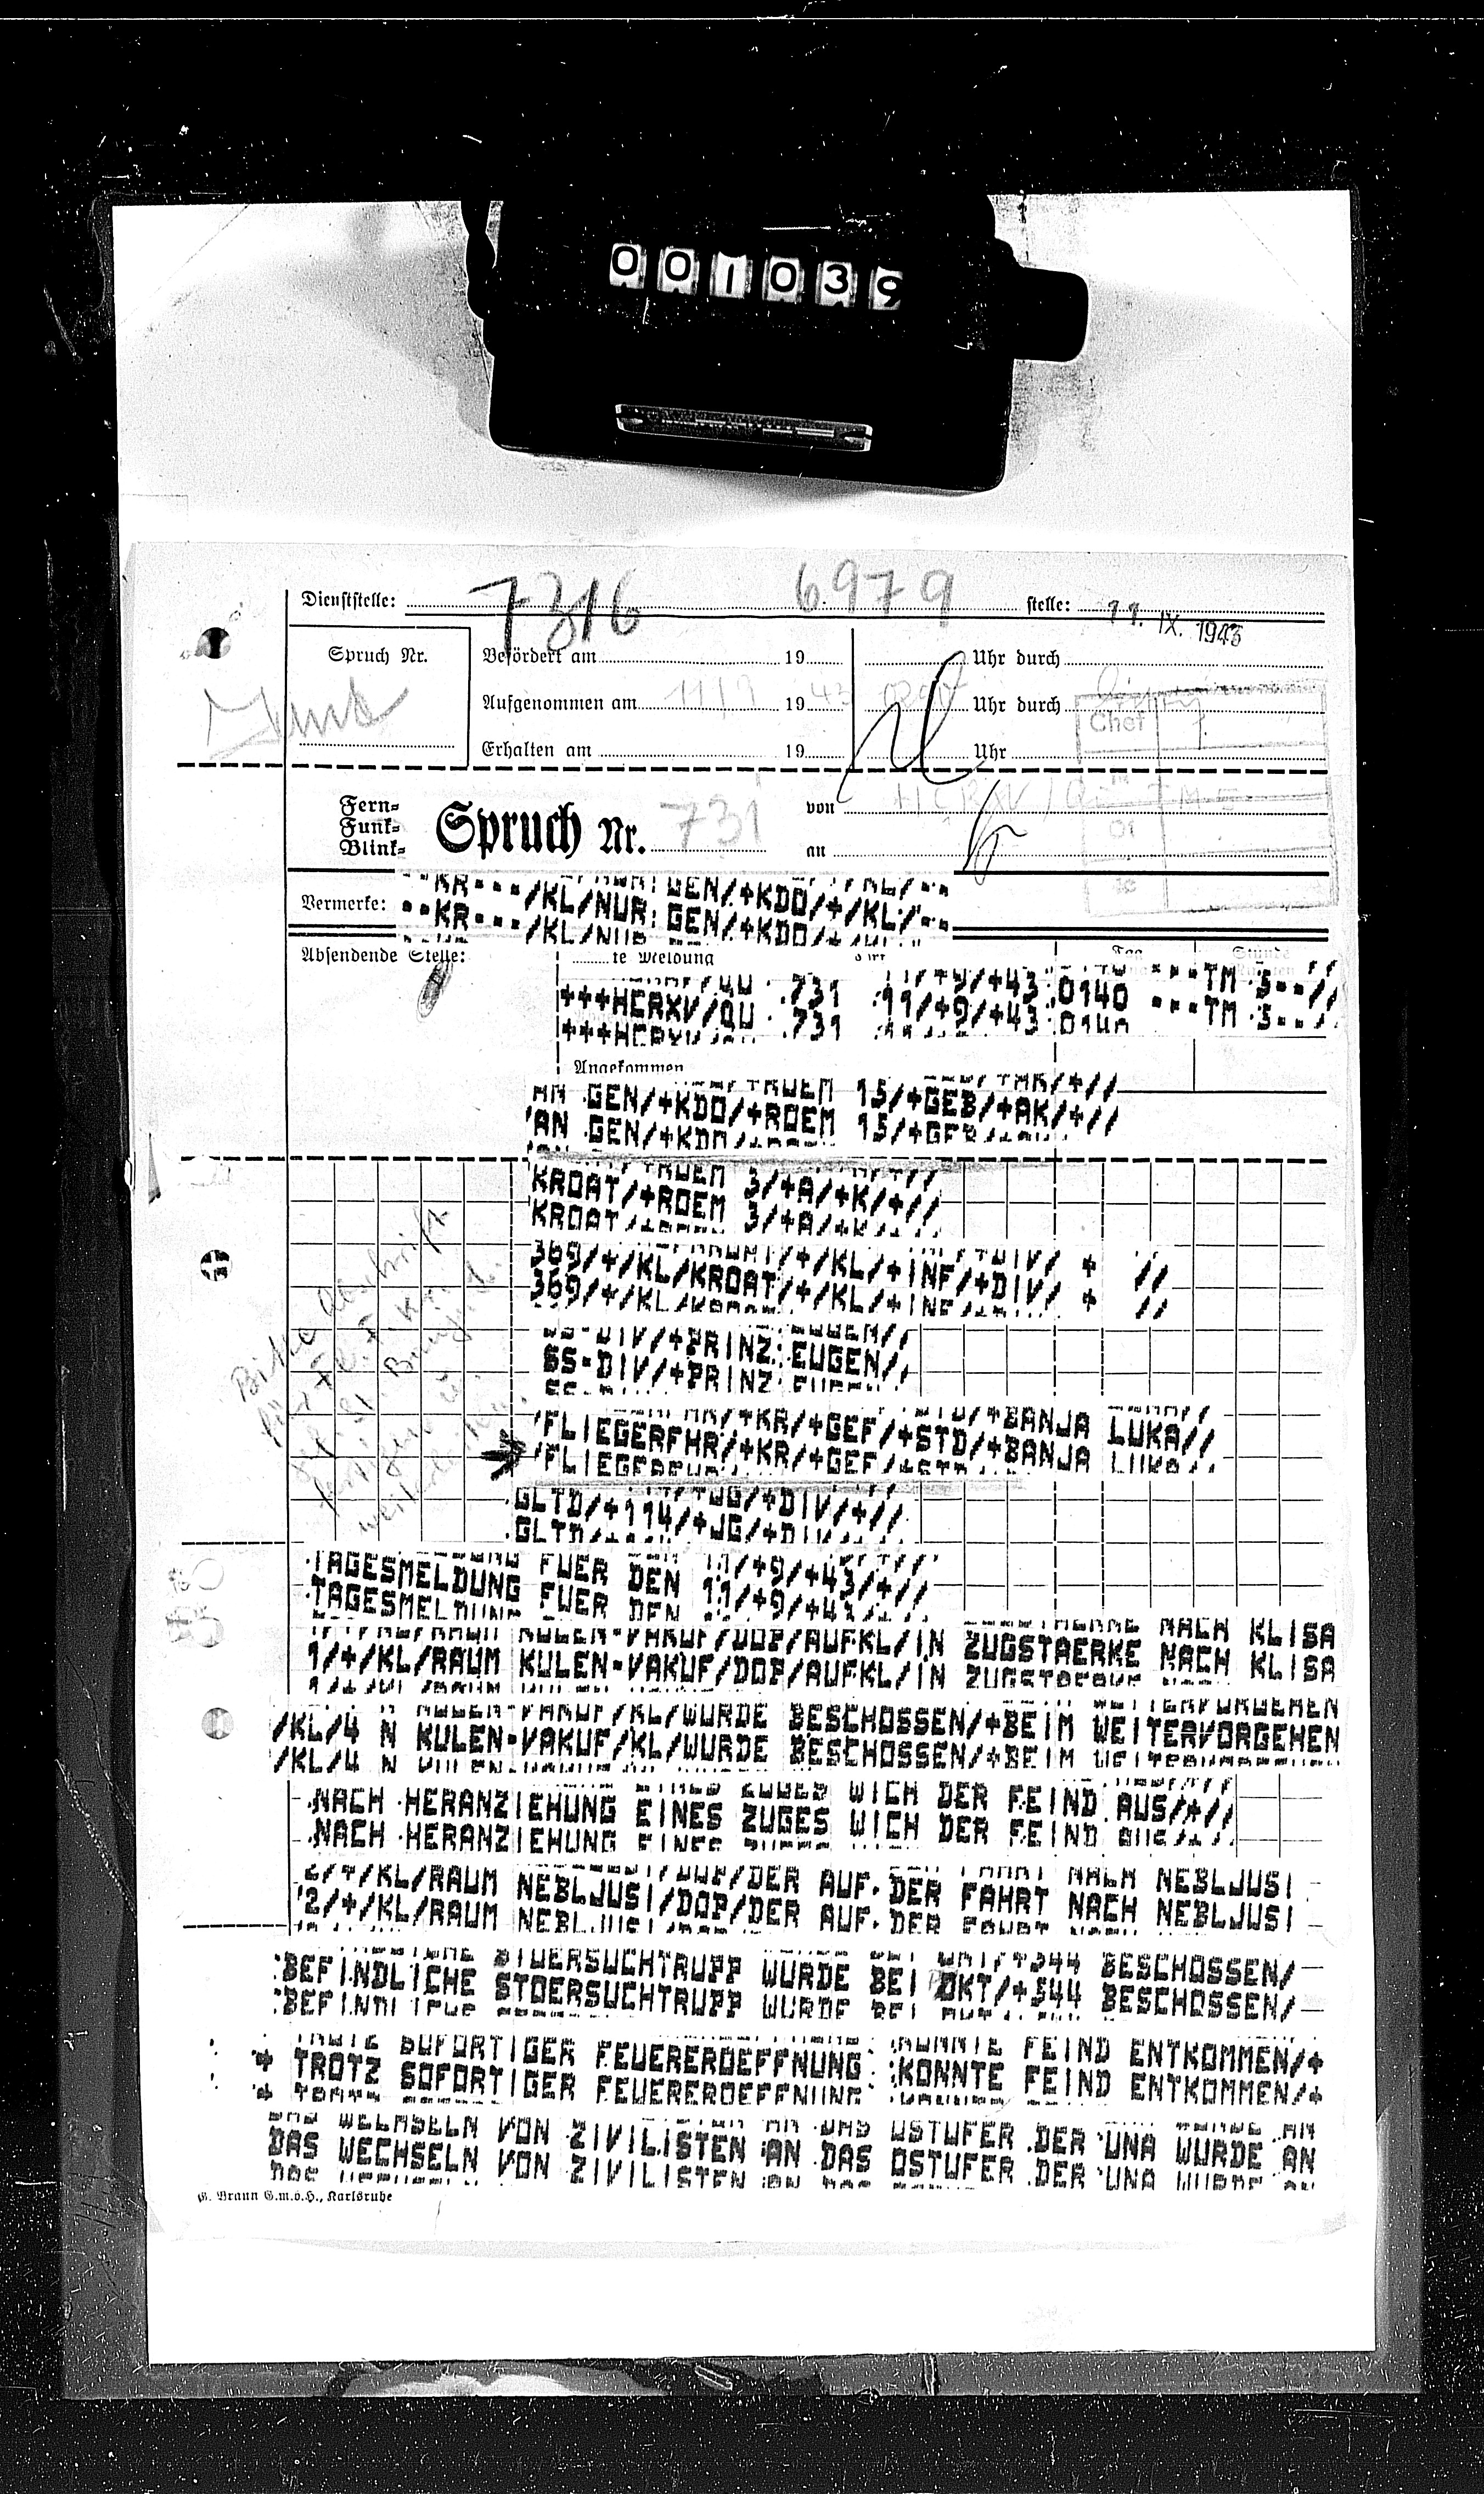 001039
7316 6979
Dienststelle: stelle: 11. IX. 1943
Spruch Nr.
Befördert am 19 Uhr durch
Aufgenommen am 11/9 19 43 Uhr durch
Chef
Erhalten am 19 Uhr
Fern-
Funk-
Blink-
Spruch Nr. 731
von HCRXV/QU TM 5
an
Ic
Vermerke: --KR---/KL/NUR GEN/+KDO/+/KL/--
Absendende Stelle: te Meldung Ort Tag Stunde
+++HCRXV/QU 731 11/+9/+43 0140 ---TM 5--//
Angekommen
AN GEN/+KDO/+ROEM 15/+GEB/+AK/+//
KROAT/+ROEM 3/+A/+K/+//
369/+/KL/KROAT/+/KL/+INF/+DIV/ + //
SS-DIV/+PRINZ EUGEN//
/FLIEGERFHR/+KR/+GEF/+STD/+BANJA LUKA//
GLTD/+114/+JG/+DIV/+//
TAGESMELDUNG FUER DEN 11/+9/+43/+//
1/+/KL/RAUM KULEN-VAKUF/DOP/AUFKL/IN ZUGSTAERKE NACH KLISA
/KL/4 N KULEN-VAKUF/KL/WURDE BESCHOSSEN/+BEIM WEITERVORGEHEN
NACH HERANZIEHUNG EINES ZUGES WICH DER FEIND AUS/+//
2/+/KL/RAUM NEBLJUSI/DOP/DER AUF DER FAHRT NACH NEBLJUSI
BEFINDLICHE STOERSUCHTRUPP WURDE BEI OKT/+344 BESCHOSSEN/
+ TROTZ SOFORTIGER FEUEREROEFFNUNG KONNTE FEIND ENTKOMMEN/+
DAS WECHSELN VON ZIVILISTEN AN DAS OSTUFER DER UNA WURDE AN
G. Braun G.m.b.H., Karlsruhe